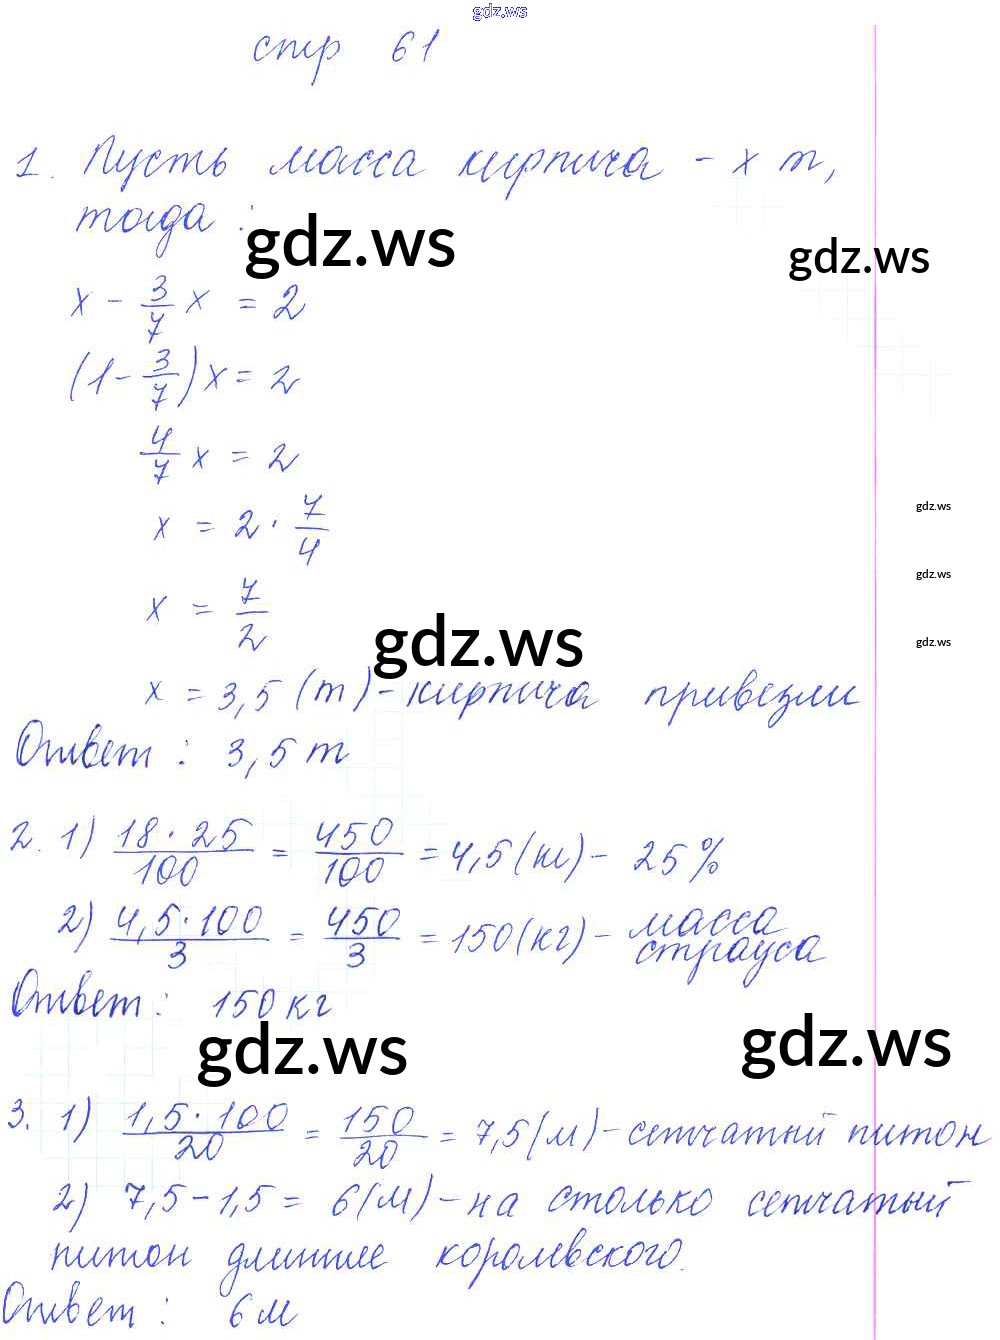 gdz.ws
стр 61
1. Пусть масса кирпича - x т,
тогда :
gdz.ws
gdz.ws
x - 3/7 x = 2
(1 - 3/7) x = 2
4/7 x = 2
x = 2 · 7/4
gdz.ws
gdz.ws
x = 7/2
gdz.ws
gdz.ws
x = 3,5 (т) - кирпича привезли
Ответ : 3,5 т
2. 1) 18 · 25/100 = 450/100 = 4,5 (кг) - 25 %
2) 4,5 · 100/3 = 450/3 = 150 (кг) - масса страуса
Ответ : 150 кг
gdz.ws
gdz.ws
3. 1) 1,5 · 100/20 = 150/20 = 7,5 (м) - сетчатый питон
2) 7,5 - 1,5 = 6 (м) - на столько сетчатый
питон длиннее королевского.
Ответ : 6 м